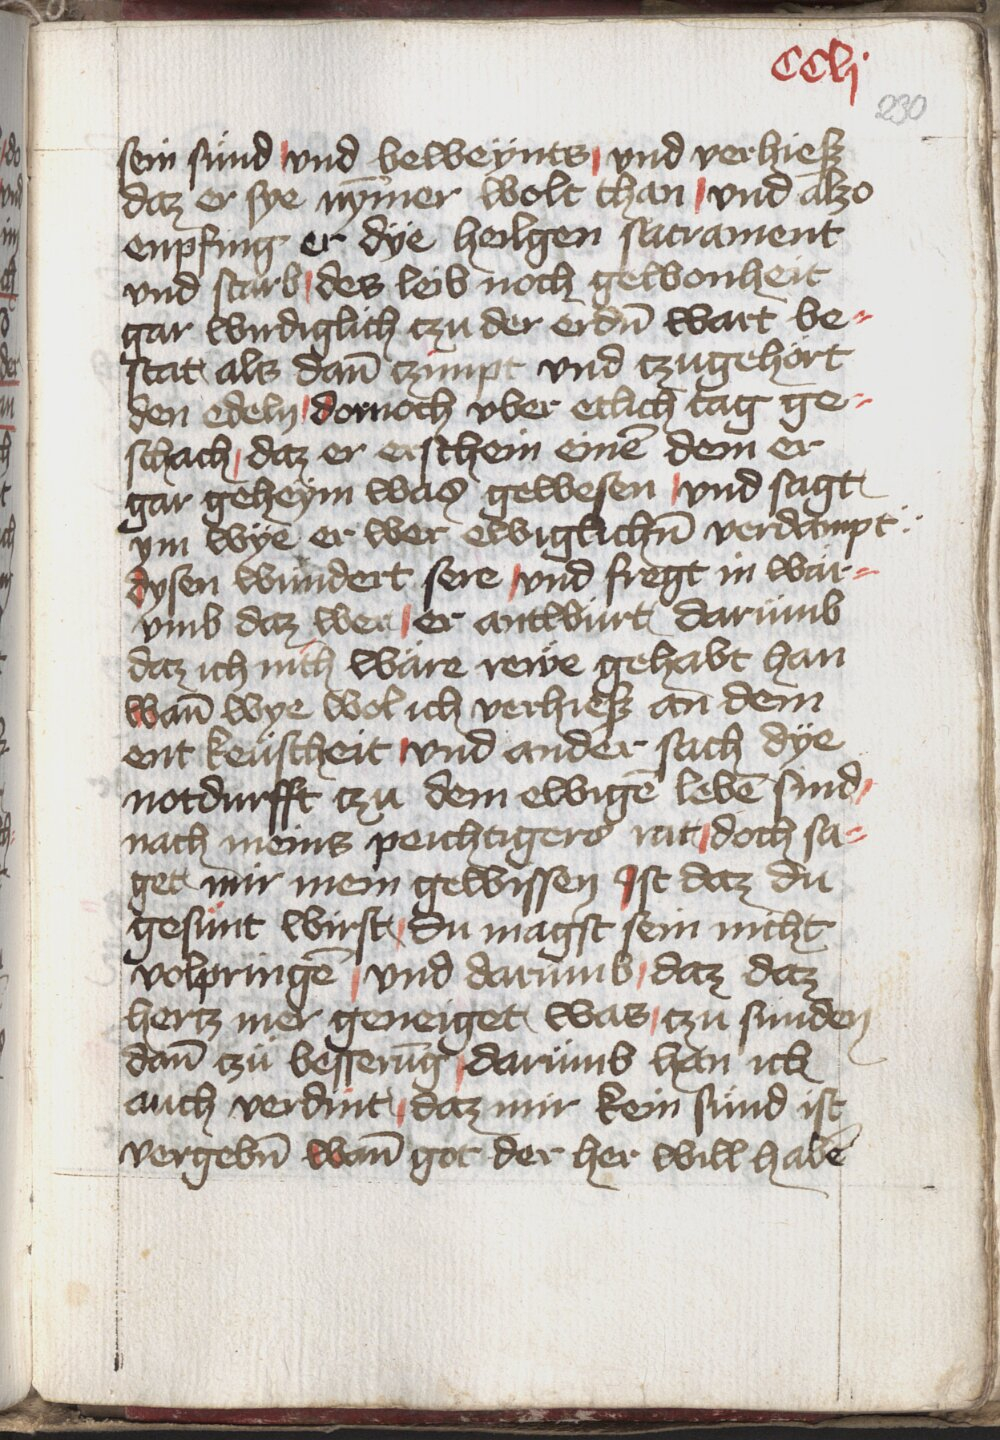 CClj
230
sein sünd vnd beweÿnts vnd verhieß
daz er sye nÿmer wolt than vnd alzo
enpfing er dÿe heilgen sacrament
vnd starb des leib noch gewonheit
gar wirdiglich tzu der erdn̄ wart be-
stat als dan̄ tzimpt vnd tzugehört
den edeln dornoch vber etlich tag ge-
schach daz er erschein einē dem er
gar geheÿm was gewesen vnd sagt
ym wÿe er wer ewiglichn̄ verdampt
dysen wundert sere vnd fregt in war-
vmb daz wer er antwürt darümb
daz ich nich ware rewe gehabt han
wan̄ wye wol ich verhieß an dem
ent keüscheit vnd ander sach dÿe
notdurfft tzu dem ewigē lebē sind
nach meins peichtigers rat doch sa-
get mir mein gewissen Ist daz du
gesunt wirst du magst sein nicht
volpringē vnd darumb daz daz
hertz mer geneiget was tzu sunden
dan̄ tzü besserūg darümb han ich
auch verdint daz mir kein sünd ist
vergebn̄ wan̄ got der her will habē